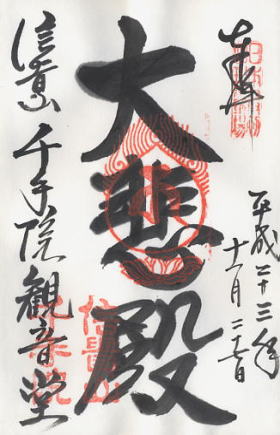 奉拝
平成二十三年
十一月二十六日
大悲殿
信貴山
千手院
観音堂